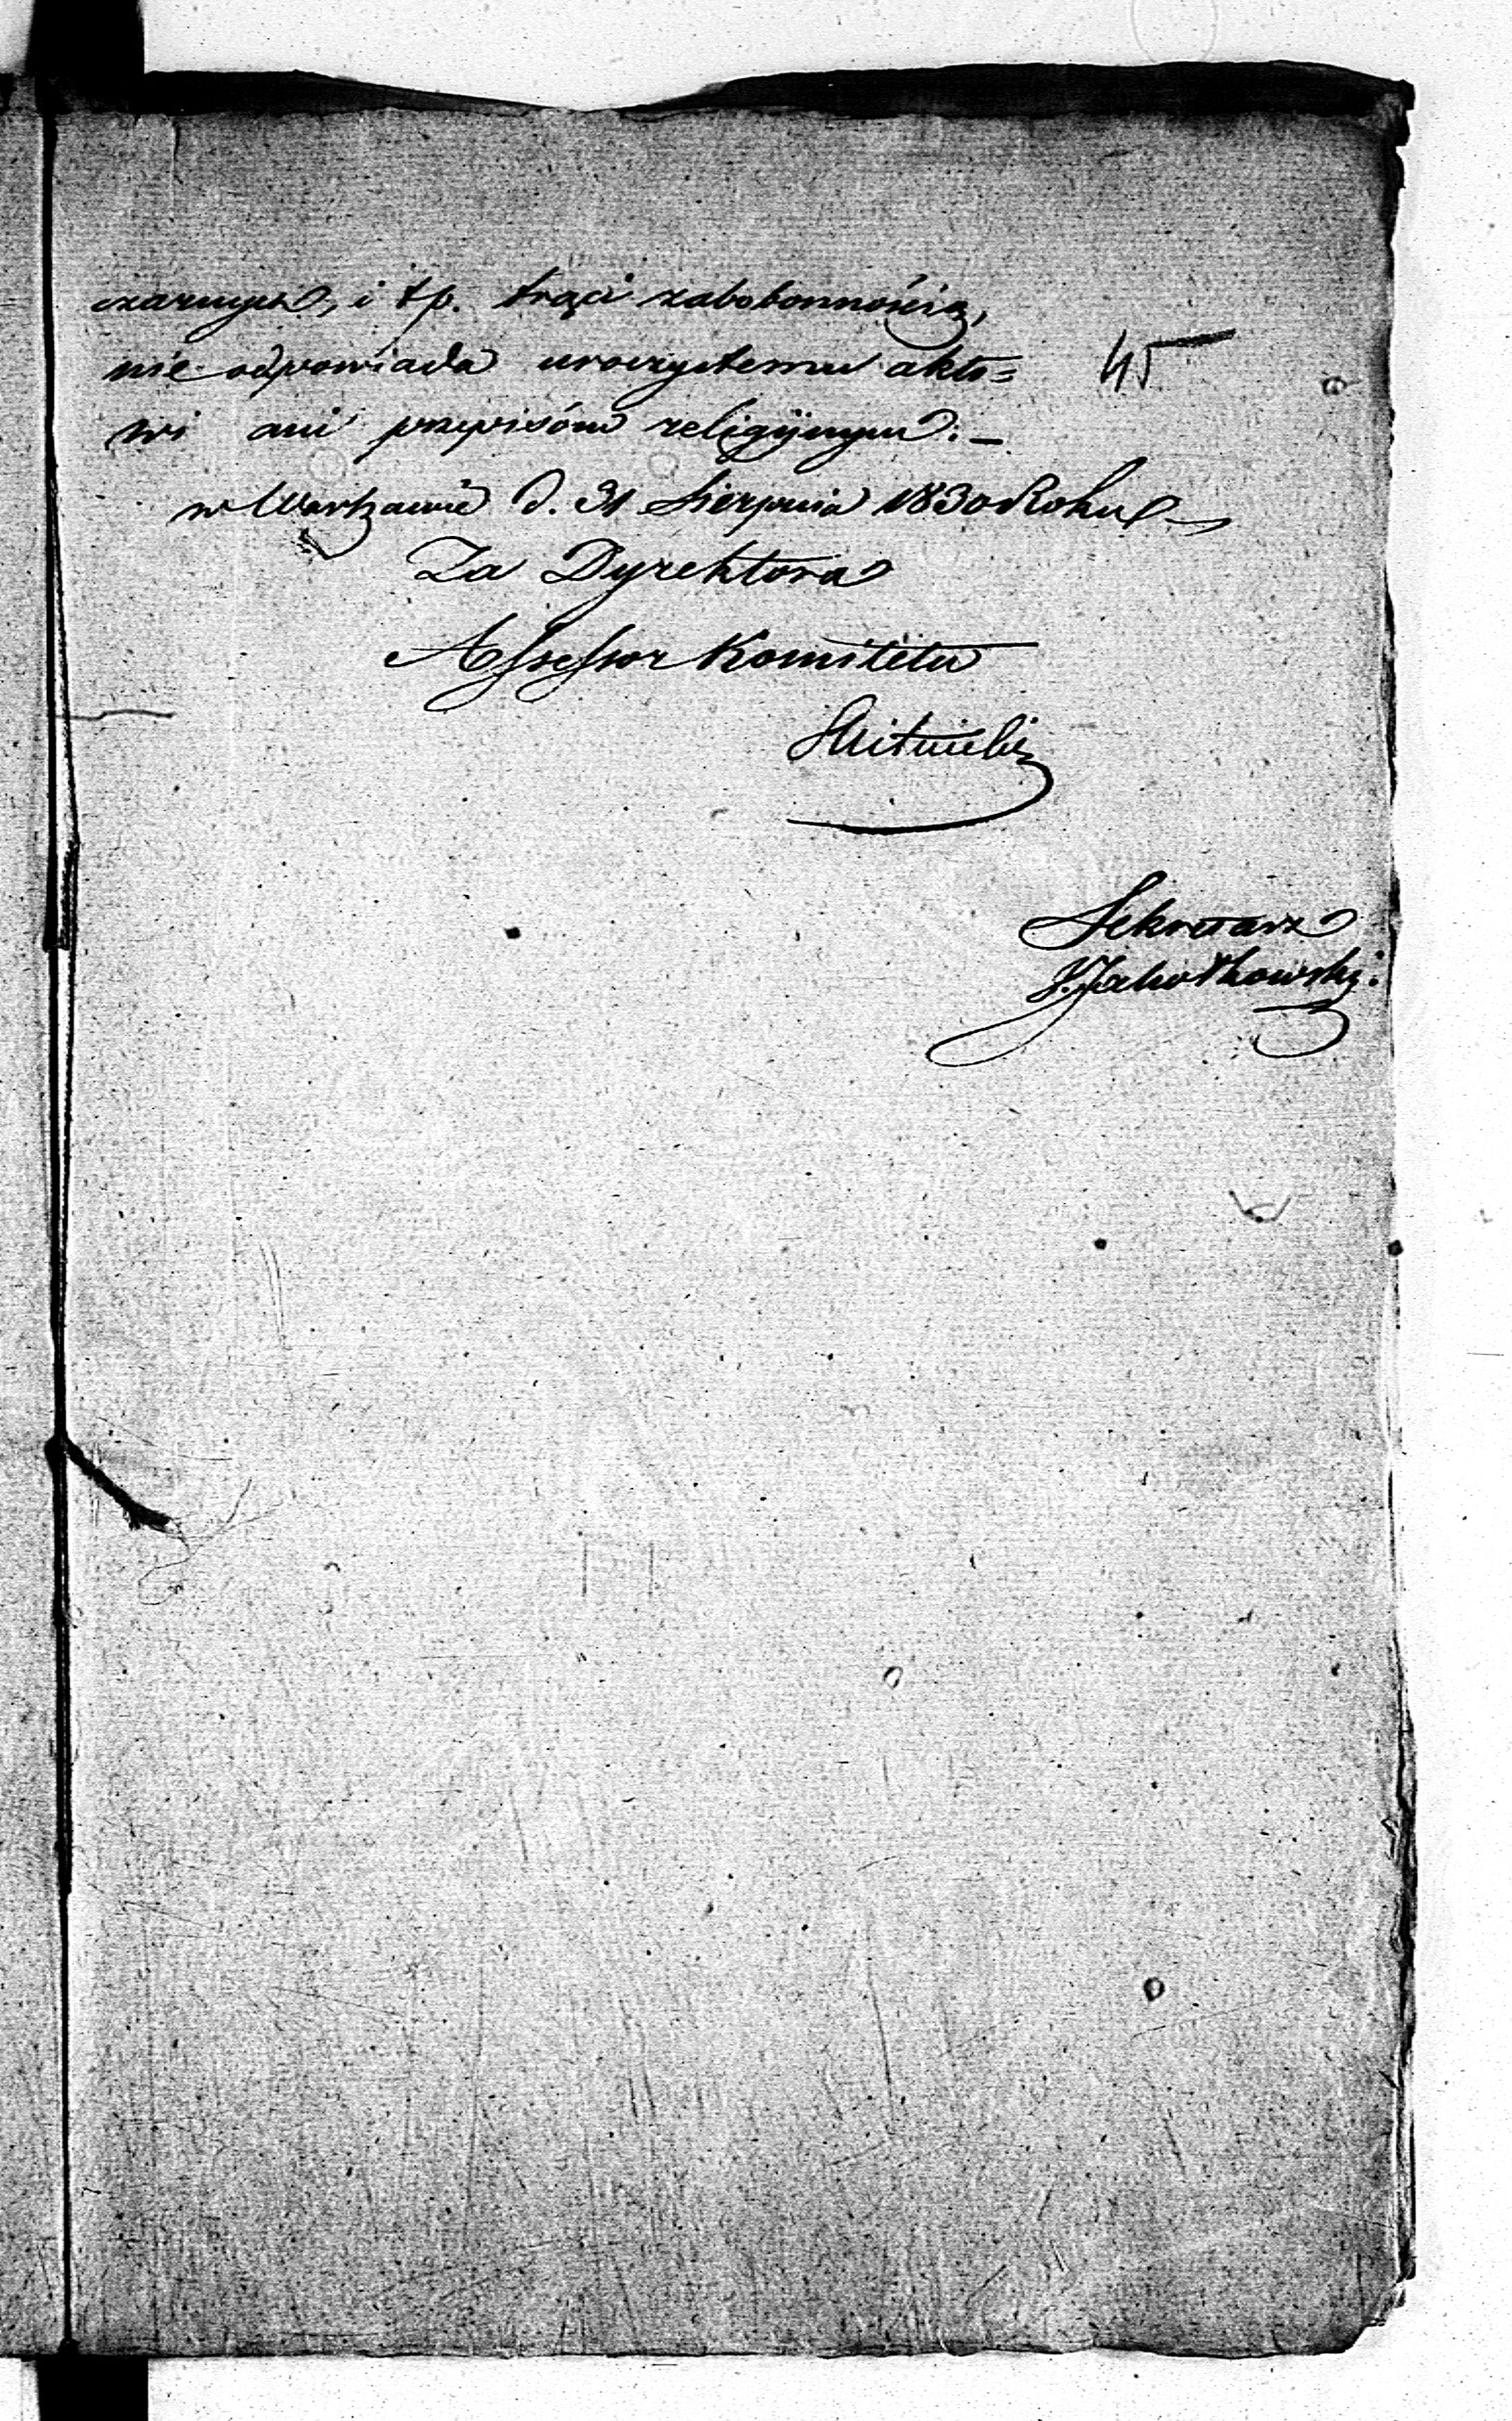 czarnych, i t p. trąci zabobonnością,
nie odpowiada uroczystemu akto=
45
wi ani przepisóm religijnym. –
w Warszawie d. 31 Sierpnia 1830 Roku
Za Dyrektora
Assessor Komitetu
Sekretarz